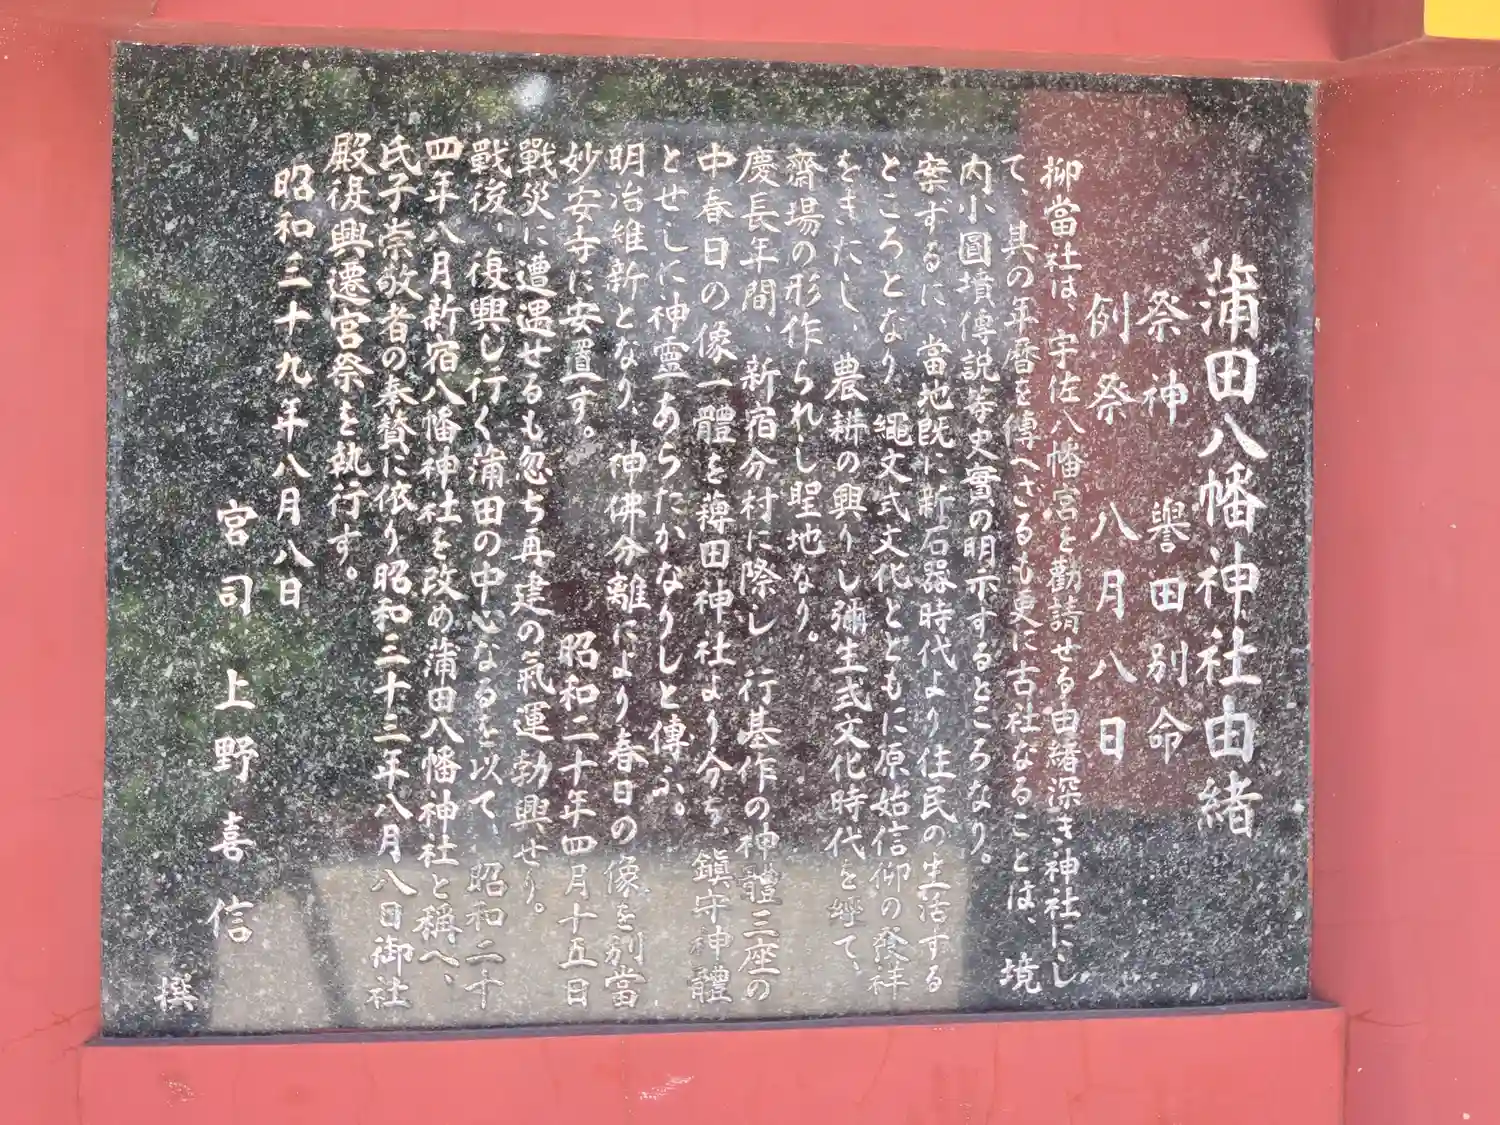 蒲田八幡神社由緒
祭神　譽田別命
例祭　八月八日
抑當社は、宇佐八幡宮を勸請せる由緒深き神社にし
て、其の年曆を傳へざるも更に古社なることは、境
内小圓墳傳説等史實の明示するところなり。
案ずるに、當地既に新石器時代より住民の生活する
ところとなり繩文式文化とともに原始信仰の發祥
をきたし、農耕の興りし彌生式文化時代を經て、
齋場の形作られし聖地なり。
慶長年間、新宿分村に際し、行基作の神體三座の
中春日の像一體を薭田神社より分ち、鎭守神體
とせしに神靈あらたかなりしと傳ふ。
明治維新となり、神佛分離により春日の像を別當
妙安寺に安置す。　昭和二十年四月十五日
戰災に遭遇せるも忽ち再建の氣運勃興せり。
戰後、復興し行く蒲田の中心なるを以て、昭和二十
四年八月新宿八幡神社を改め蒲田八幡神社と稱へ、
氏子崇敬者の奉贊に依り昭和三十三年八月八日御社
殿復興遷宮祭を執行す。
昭和三十九年八月八日
宮司　上野喜信　撰